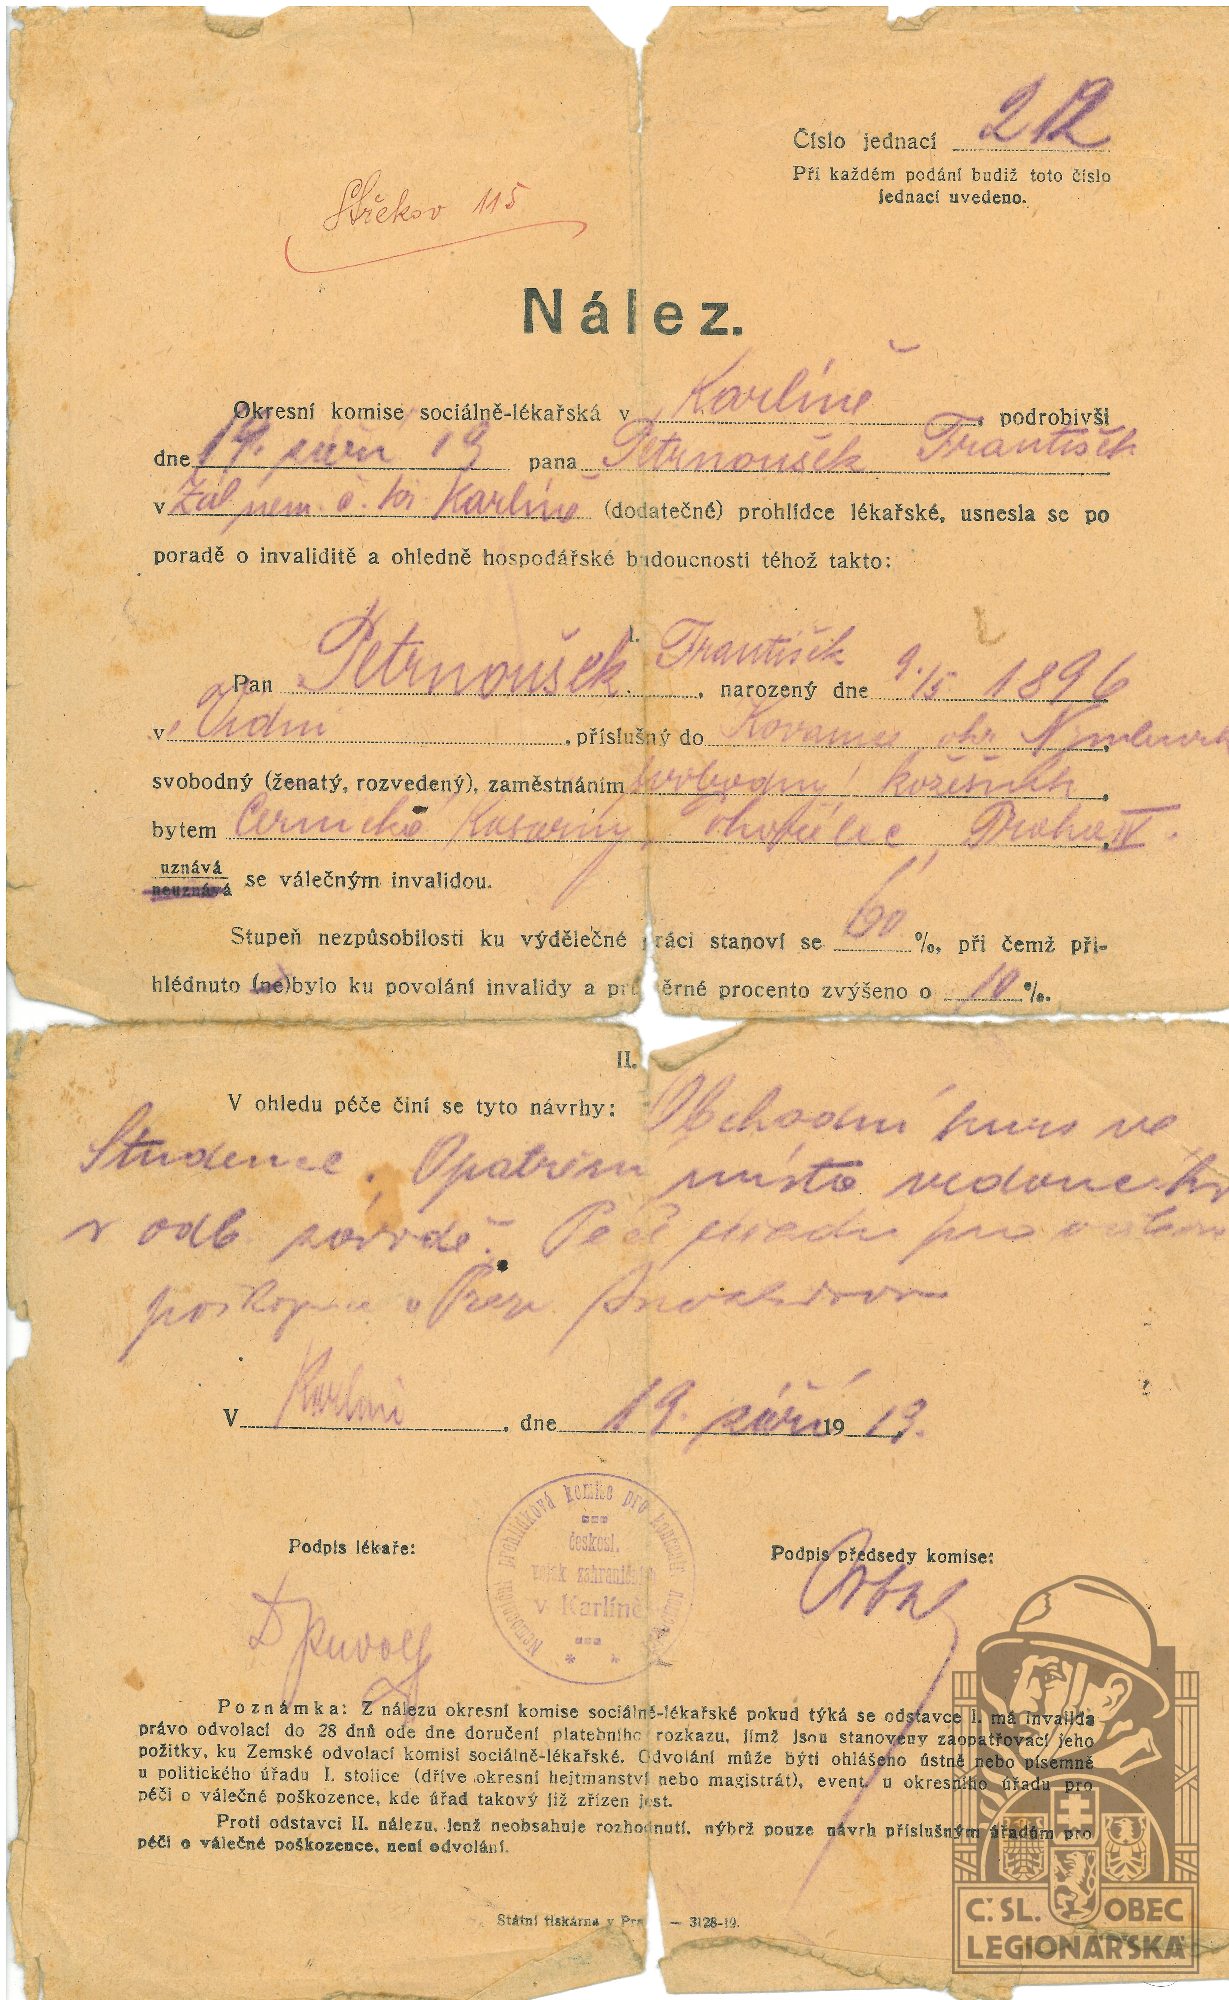 Číslo jednací 212
Při každém podání budiž toto číslo
jednací uvedeno.
Střekov 115
Nález.
Okresní komise sociálně-lékařská v Karlíně, podrobivši
dne 19. září 19 pana Petrnoušek František
v Zál. nem. č. Karlíně (dodatečné) prohlídce lékařské, usnesla se po
poradě o invaliditě a ohledně hospodářské budoucnosti téhož takto:
I.
Pan Petrnoušek František, narozený dne 9./5 1896
v Vídni, příslušný do okr.
svobodný (ženatý, rozvedený), zaměstnáním svobodný kožešník,
bytem Černické Kasárny, Praha IV.
uznává
neuznává se válečným invalidou.
Stupeň nezpůsobilosti ku výdělečné práci stanoví se 60 %, při čemž při-
hlédnuto (ne)bylo ku povolání invalidy a průměrné procento zvýšeno o 10 %.
II.
V ohledu péče činí se tyto návrhy: Obchodní kurs ve
Studence. Opatření místa
v odb. závodě. Péče úřadu pro
V Karlíně, dne 19. září 1919.
Podpis lékaře:
Podpis předsedy komise:
Nemocniční prohlídková komise pro
českosl.
vojsk zahraničních
v Karlíně
Poznámka: Z nálezu okresní komise sociálně-lékařské pokud týká se odstavce I. má invalida
právo odvolací do 28 dnů ode dne doručení platebního rozkazu, jímž jsou stanoveny zaopatřovací jeho
požitky, ku Zemské odvolací komisi sociálně-lékařské. Odvolání může býti ohlášeno ústně nebo písemně
u politického úřadu I. stolice (dříve okresní hejtmanství nebo magistrát), event. u okresního úřadu pro
péči o válečné poškozence, kde úřad takový již zřízen jest.
Proti odstavci II. nálezu, jenž neobsahuje rozhodnutí, nýbrž pouze návrh příslušným úřadům pro
péči o válečné poškozence, není odvolání.
Státní tiskárna v Praze — 3128-19.
Č. SL. OBEC
LEGIONÁŘSKÁ